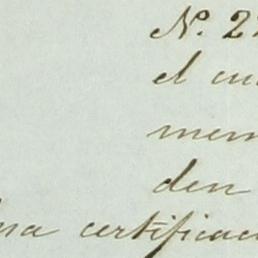 Nº. 22
el cu
mem
den
na certificac